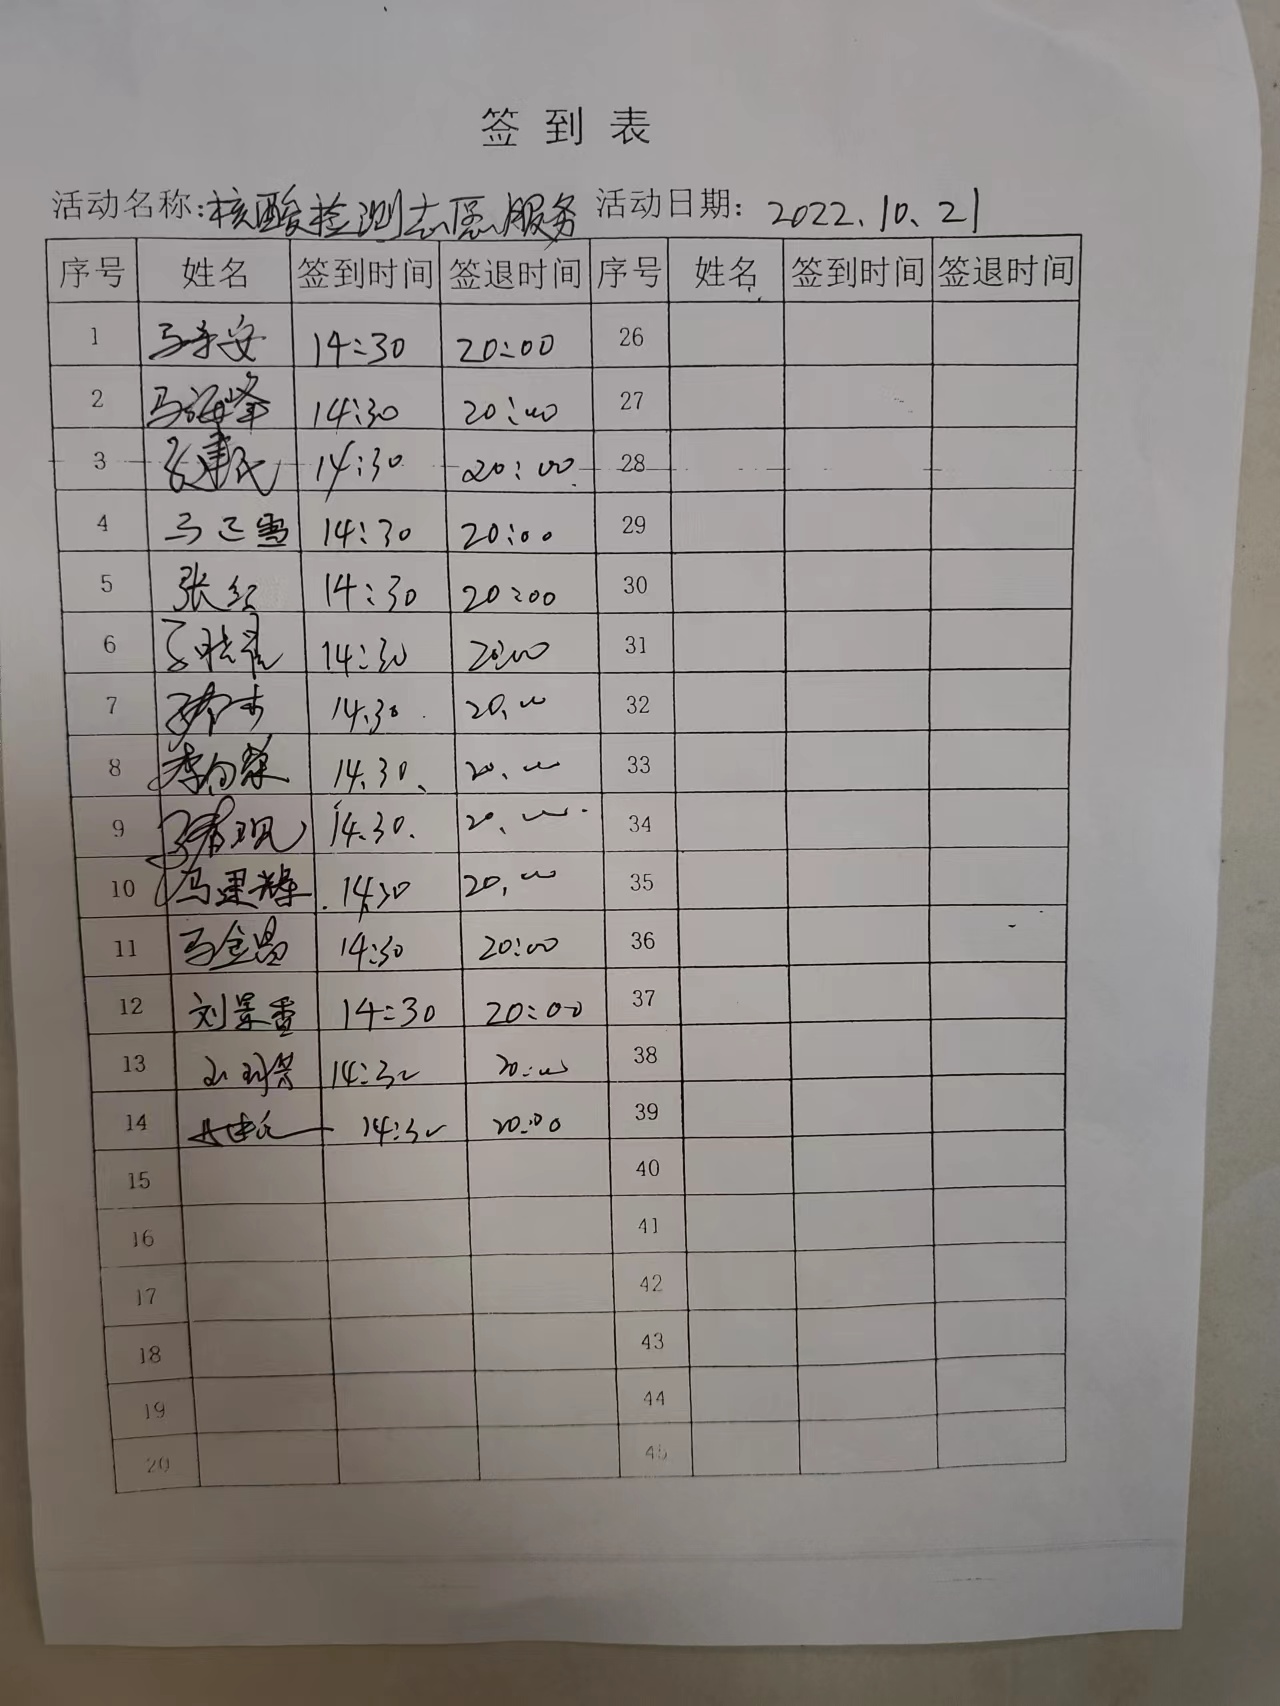 签到表
活动名称:核酸检测志愿服务 活动日期: 2022.10.21
序号 姓名 签到时间 签退时间 序号 姓名 签到时间 签退时间
1 14:30 20:00 26
2 马海峰 14:30 20:00 27
3 14:30 20:00 28
4 14:30 20:00 29
5 张红 14:30 20:00 30
6 14:30 20:00 31
7 14.30 20.00 32
8 14.30. 20.00 33
9 14.30. 20.00 34
10 马建辉 14:30 20.00 35
11 马金昌 14:30 20:00 36
12 刘景香 14:30 20:00 37
13 14:30 20:00 38
14 14:30 20:00 39
15 40
16 41
17 42
18 43
19 44
20 45